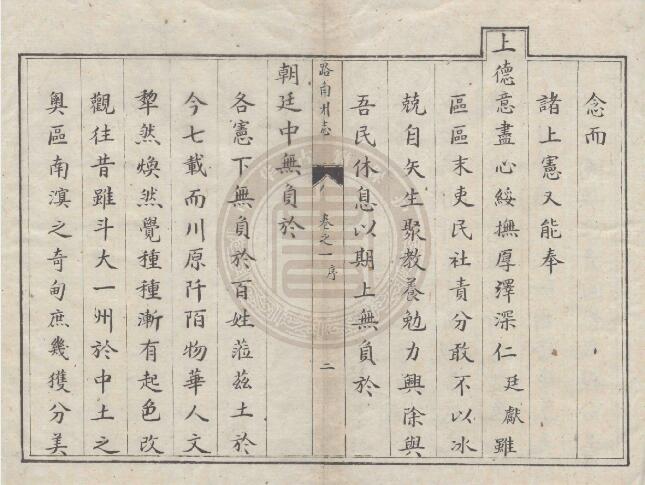 念而
諸上憲又能奉
上德意盡心綏撫厚澤深仁廷獻雖
區區末吏民社責分敢不以冰
兢自矢生聚教養勉力興除與
吾民休息以期上無負於
路南州志 卷之一序 二
朝廷中無負於
各憲下無負於百姓蒞茲土於
今七載而川原阡陌物華人文
犂然煥然覺種種漸有起色改
觀往昔雖斗大一州於中土之
奧區南滇之奇甸庶幾獲分美